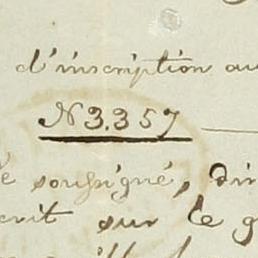 d'inscription au
N 3.357
é soussigné, dir
crit sur le g